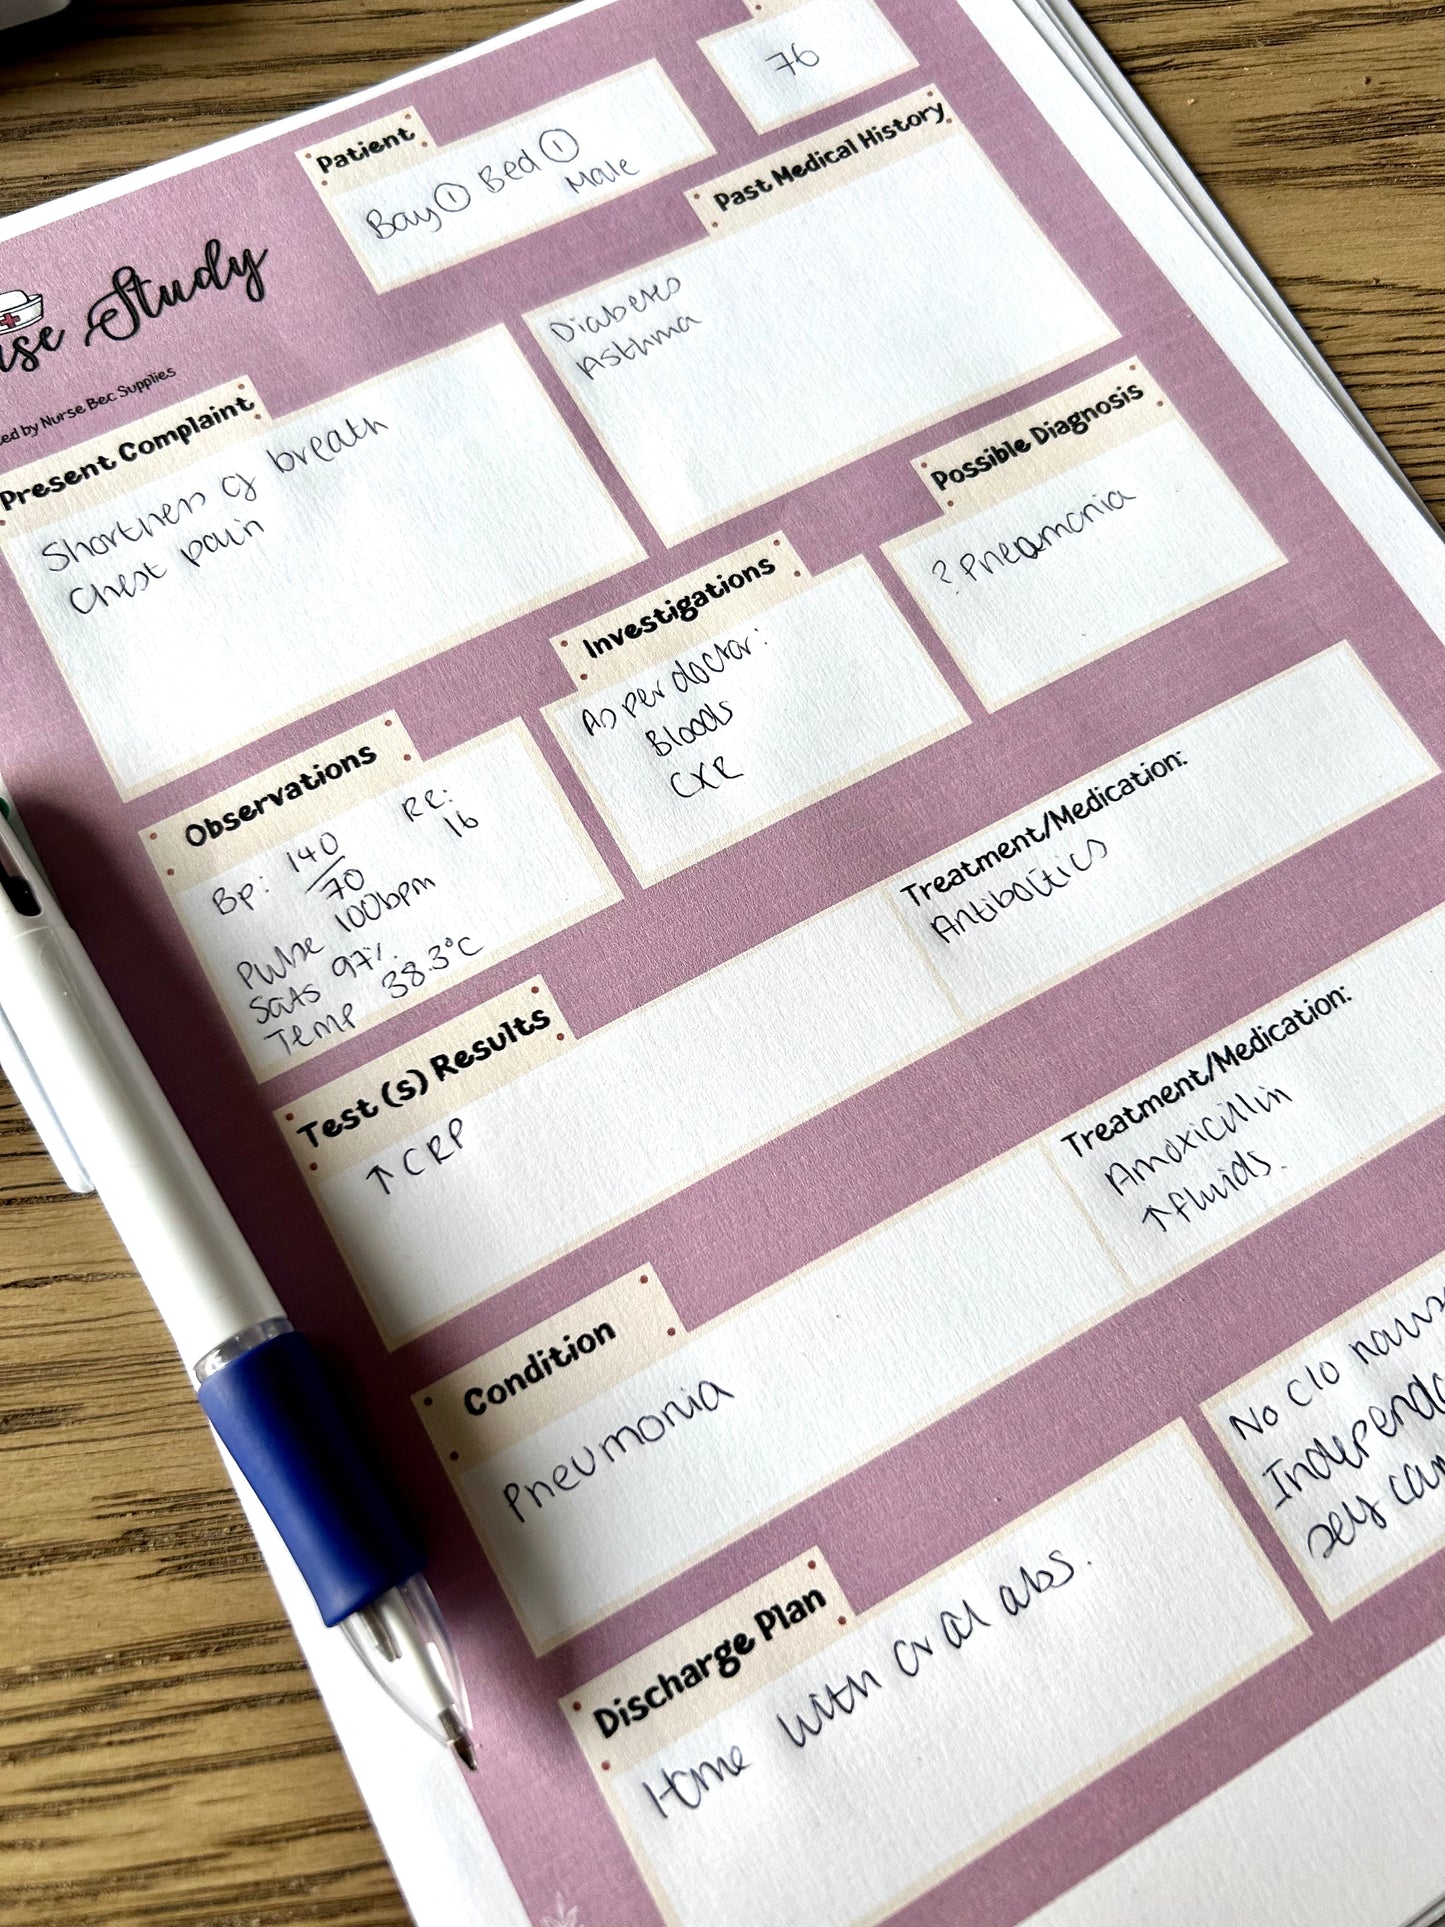 76
Patient
Bay ① Bed ①
Male
Past Medical History
Diabetes
Asthma
Study
by Nurse Bec Supplies
Present Complaint
Shortness of breath
Chest pain
Possible Diagnosis
? Pneumonia
Investigations
As per doctor:
Bloods
CXR
Observations
BP: 140/70
RR: 16
Pulse 100bpm
Sats 97%
Temp 38.3°C
Treatment/Medication:
Antiboitics
Test (s) Results
↑ CRP
Treatment/Medication:
Amoxicillin
↑ fluids.
Condition
Pneumonia
No C/O
Discharge Plan
Home with oral abs.